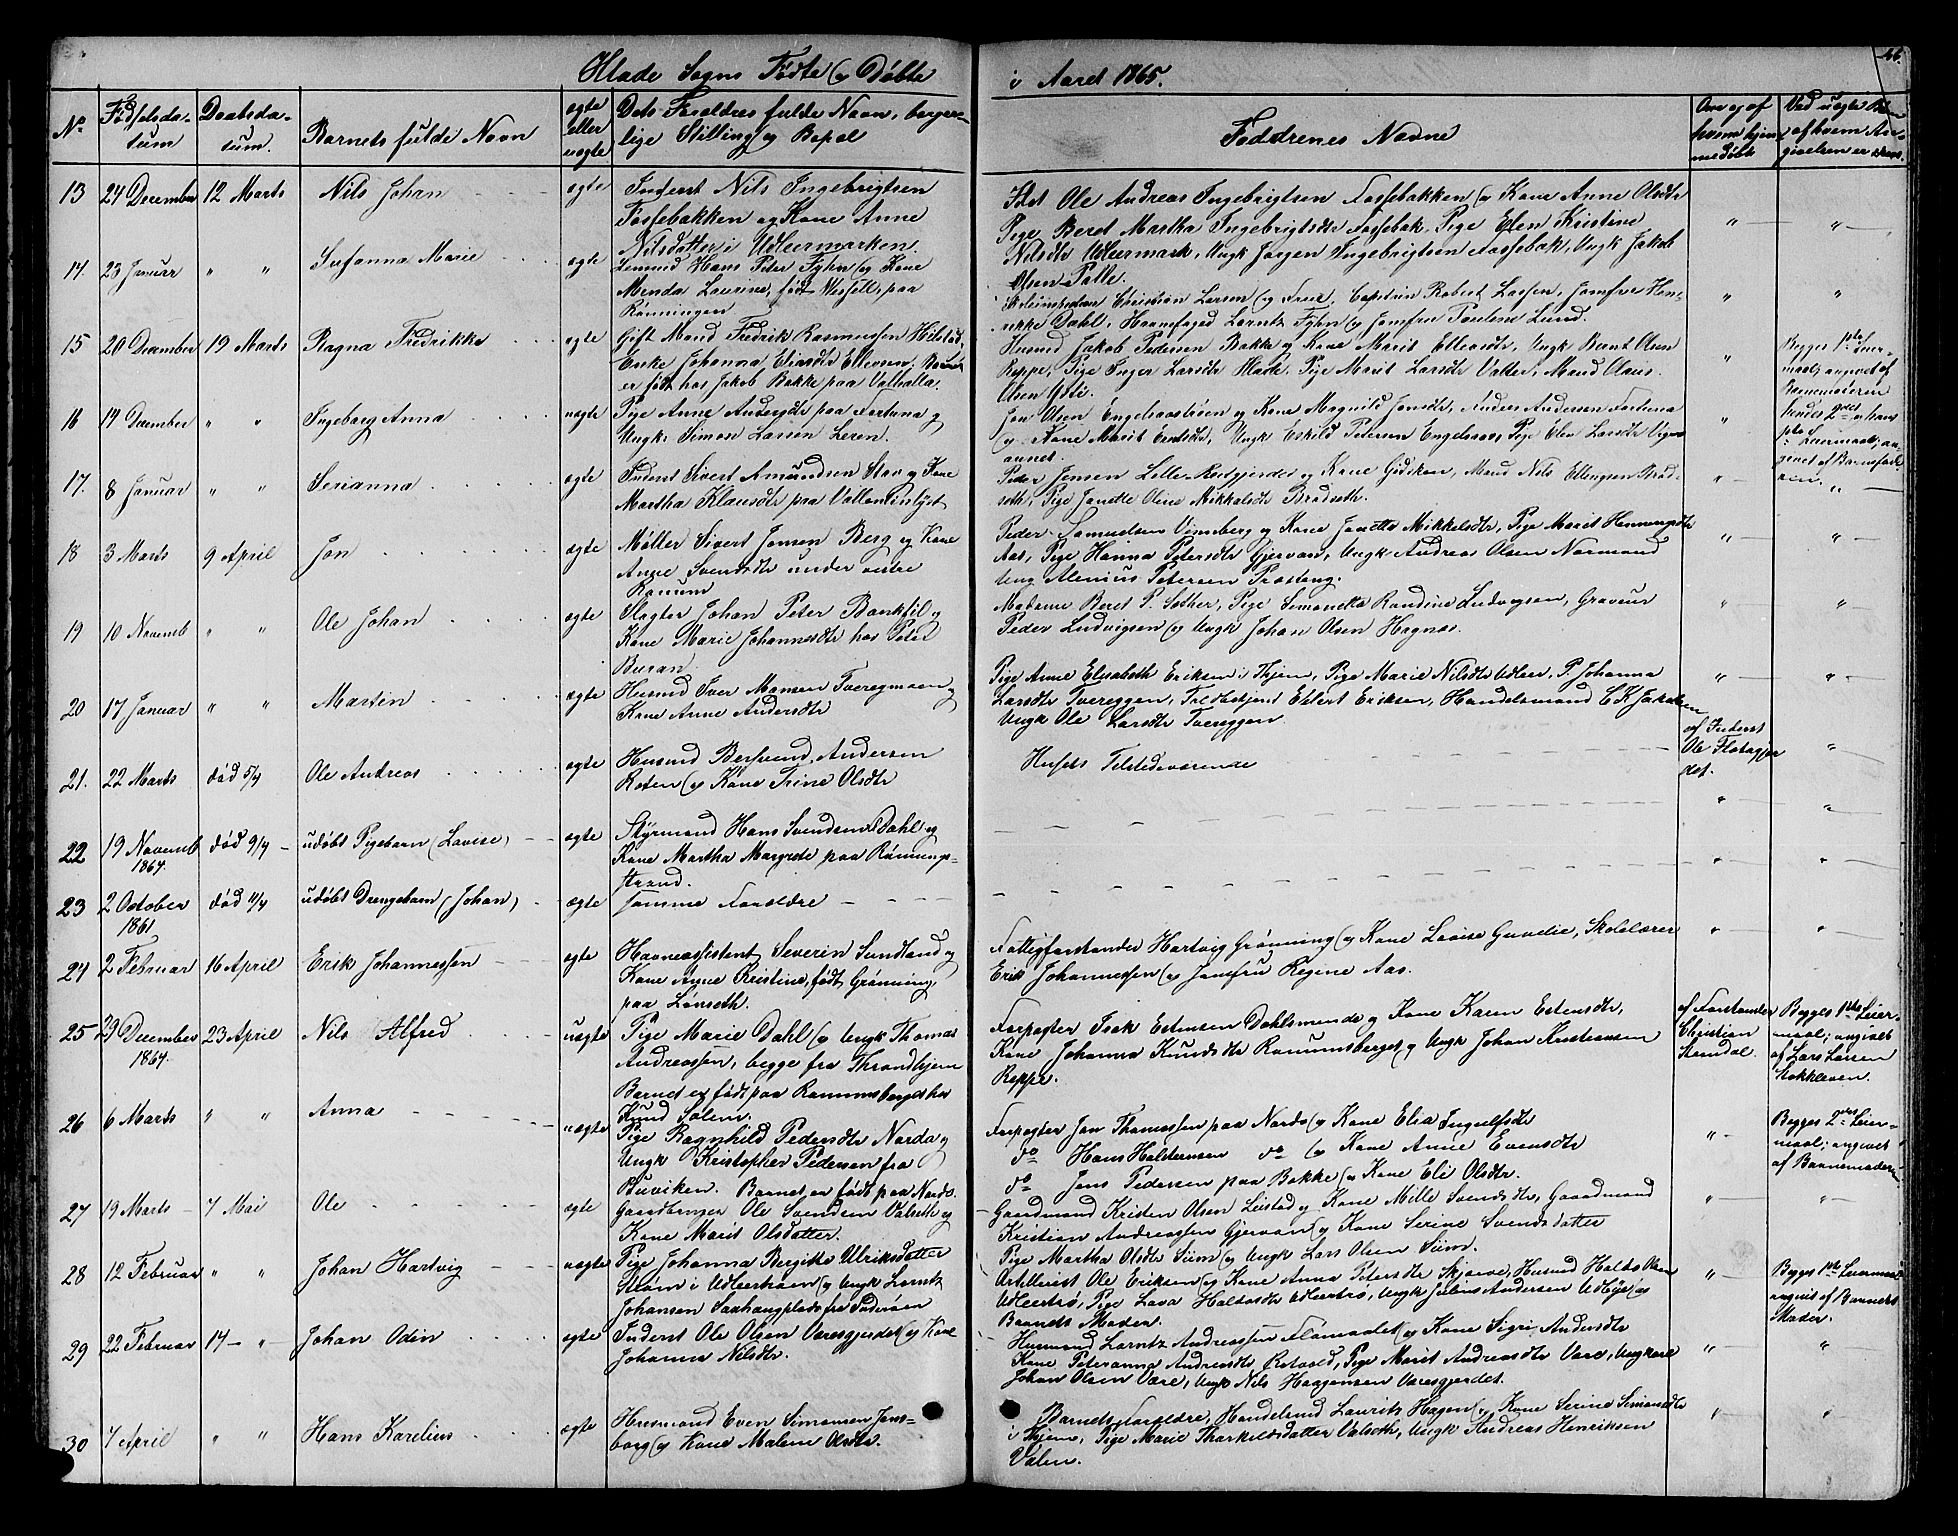 Hlade Sogns Fødte og Døbte i Aaret 1865.
46.
No
Fødselsdatum
Daabsdatum.
Barnets fulde Navn
ægte eller uægte
Dets Forældres fulde Navn, borgerlige Stilling og Bopæl
Faddrenes Navne
Om og af hvem hjemmedøbt
Ved uægte Børn af hvem Angivelsen er
13 24 December 12 Marts Nils Johan ægte
Inderst Nils Ingebrigtsen
Fossebakken og Kone Anne
Nilsdatter i Udleermarken.
Ole Andreas Ingebrigtsen Fossebakken og Kone Anne Olsdtr
Pige Beret Martha Ingebrigtsdtr Fossebak, Pige Elen Kristine
Nilsdtr Udleermark, Ungk Jørgen Ingebrigtsen Fossebak, Ungk Jakob
Olsen
14. 23 Januar " " Susanna Marie ægte
Hans Peter Fyhn og Kone
Laurine, født Wessell, paa
Rønningen
Christian Larsen og Frue, Captein Robert Lassen, Jomfru Hen-
rikke Dahl, Havnefoged Lorntz Fyhn og Jomfru Pauline Lund.
15 20 December 19 Marts Ragna Fredrikke ægte
Gift Mand Fredrik Rasmussen
Enke Johanna Eliasdtr Ellevsen. Barnet
er født hos Jakob Bakke paa Valhalla.
Husmd Jakob Pedersen Bakke og Kone Marit Ellevsdtr, Ungk Bernt Olsen
Reppe, Pige Inger Larsdtr Hlade, Pige Marit Larsdtr Valter, Mand Claus
Olsen
Begges 1ste Leier-
maal; angivet af
Barnemoderen
16 14 December " " Ingeborg Anna uægte
Pige Anne Andersdtr paa Fortuna og
Ungk: Simon Larsen Leren.
Jon Olsen og Kone Magnild Jonsdtr, Anders Andersen Fortuna
og Kone Marit Ernstdtr, Ungk Eskild Petersen Engelsaas, Pige Elen Larsdtr
Hendes 2det og hans
1ste Leiermaal; an-
givet af Barnefade-
ren.
17. 8 Januar " " Serianna ægte
Inderst Sivert Amundsen Stav og Kone
Martha Klausdtr paa Vallentinlyst
Peder Jensen og Kone Gidsken, Mand Nils Ellingsen Brød-
seth, Pige Janette Oline Mikkelsdtr Brødseth.
18 3 Marts 9 April Jon ægte
Møller Sivert Jonsen Berg og Kone
Anne Svendsdtr under vestre
Ranum
Peder Samuelsen Vinnberg og Kone Janetta Mikkelsdtr, Pige Marit Henningsdtr
Aas, Pige Hanna Petersdtr Gjervan, Ungk Andreas Olsen Normand
Ung Alenius Petersen
19 10 Novemb " " Ole Johan ægte
Slagter Johan Peter Bankfil og
Kone Marie Johannesdtr hos Peter
Buran.
Madame Beret P. Sæther, Pige Simonetta Randine Ludvigsen, Graveur
Peder Ludvigsen og Ungk Johan Olsen Hagnæs.
20 17 Januar " " Martin ægte
Husmd Iver Monsen Tveregmoen og
Kone Anne Andersdtr
Pige Anne Elisabeth Eriksen i Thjem, Pige Marie Nilsdtr Udleer, P. Johanna
Larsdtr Tvereggen, Eilert Eriksen, Handelsmand C. K. Jakobsen
Ungk Ole Larsdtr Tvereggen.
21. 22 Marts død 5/4 Ole Andreas ægte
Husmd Andersen
Roten og Kone Trine Olsdtr
Husets Tilstedeværende
af Inderst
Ole Flatagjer
det.
22 19 Novemb 1864. død 9/4 udøbt Pigebarn (Lovise) ægte
Styrmand Hans Svendsen Dahl og
Kone Martha Margrete paa Rønnings-
strand.
23 2 October 1861 død 11/4 udøbt Drengebarn (Johan) ægte
Samme Forældre
24 2 Februar 16 April Erik Johannessen ægte
Havneassistent Severin Sundland og
Kone Anne Kristine, født Grønning
paa Lønseth.
Fattigforstander Hartvig Grønning og Kone Lovise Gurelie, Skolelærer
Erik Johannessen og Jomfru Regine Aas.
25 29 December 1864. 23 April Nils Alfred uægte
Pige Marie Dahl og Ungk Thomas
Andreassen, begge fra Throndhjem
Barnet er født paa Ranumsberget hos
Knud Solem.
Forpagter Isak Estensen Dahlsmende og Kone Karen Estensdtr,
Kone Johanna Knudsdtr Ranumsberget og Ungk Johan Kristiansen
Reppe.
af Forstander
Christian
Stendal.
Begges 1ste Leier-
maal; angivet
af Lars Larsen
Stokkleven.
26 6 Marts " " Anna uægte
Pige Ragnhild Pedersdtr Nardo og
Ungk Kristopher Pedersen fra
Buviken. Barnet er født paa Nardo.
Forpagter Jon Thomessen paa Nardo og Kone Elia Ingulfsdtr
do Hans Haldorsen do og Kone Anne Evensdtr
do Jens Pedersen paa Bakke og Kone Eli Olsdtr.
Begges 2det Leier-
maal; angivet
af Barnemoderen
27 19 Marts 7 Mai Ole ægte
Gaardbruger Ole Svendsen Valseth og
Kone Marit Olsdatter.
Gaardmand Kristen Olsen Leistad og Kone Mille Svendsdtr, Gaardmand
Kristian Andreassen Gjervan og Kone Serine Svendsdatter
Pige Martha Olsdtr Siim og Ungk Lars Olsen Siim.
28 12 Februar " " Johan Hartvig uægte
Pige Johanna Birgitte Ulriksdatter
Strøm i Udleerhavn og Ungk Lorntz
Johansen Saxhaugplads fra Inderøen
Artillerist Ole Eriksen og Kone Anna Petersdtr Skjerve, Husmd Haltor Olsen
Udleertrø, Pige Lava Haltorsdtr Udleertrø, Ungk Julius Andersen Udbye og
Barnets Moder.
Begges 1ste Leiermaal
angivet af Barnets
Moder.
29 22 Februar 14 " Johan Odin ægte
Inderst Ole Olsen Væresgjerdet og Kone
Johanna Nilsdtr.
Husmand Lorntz Andreassen og Kone Sigri Andersdtr
Kone Peteranna Andreasdtr Rotvold, Pige Marit Andreasdtr Være, Ungkarl
Johan Olsen Være, Ungk Nils Haagensen Væresgjerdet.
30 7 April " " Hans Karelius ægte
Husmand Even Simonsen Jons-
borg og Kone Malene Olsdtr.
Barnets Forældre, Handelsmd Laurits Hagen og Kone Serine Simonsdtr
i Thjem, Pige Marie Tharkildsdatter Valseth, Ungk Andreas Henriksen
Valen.